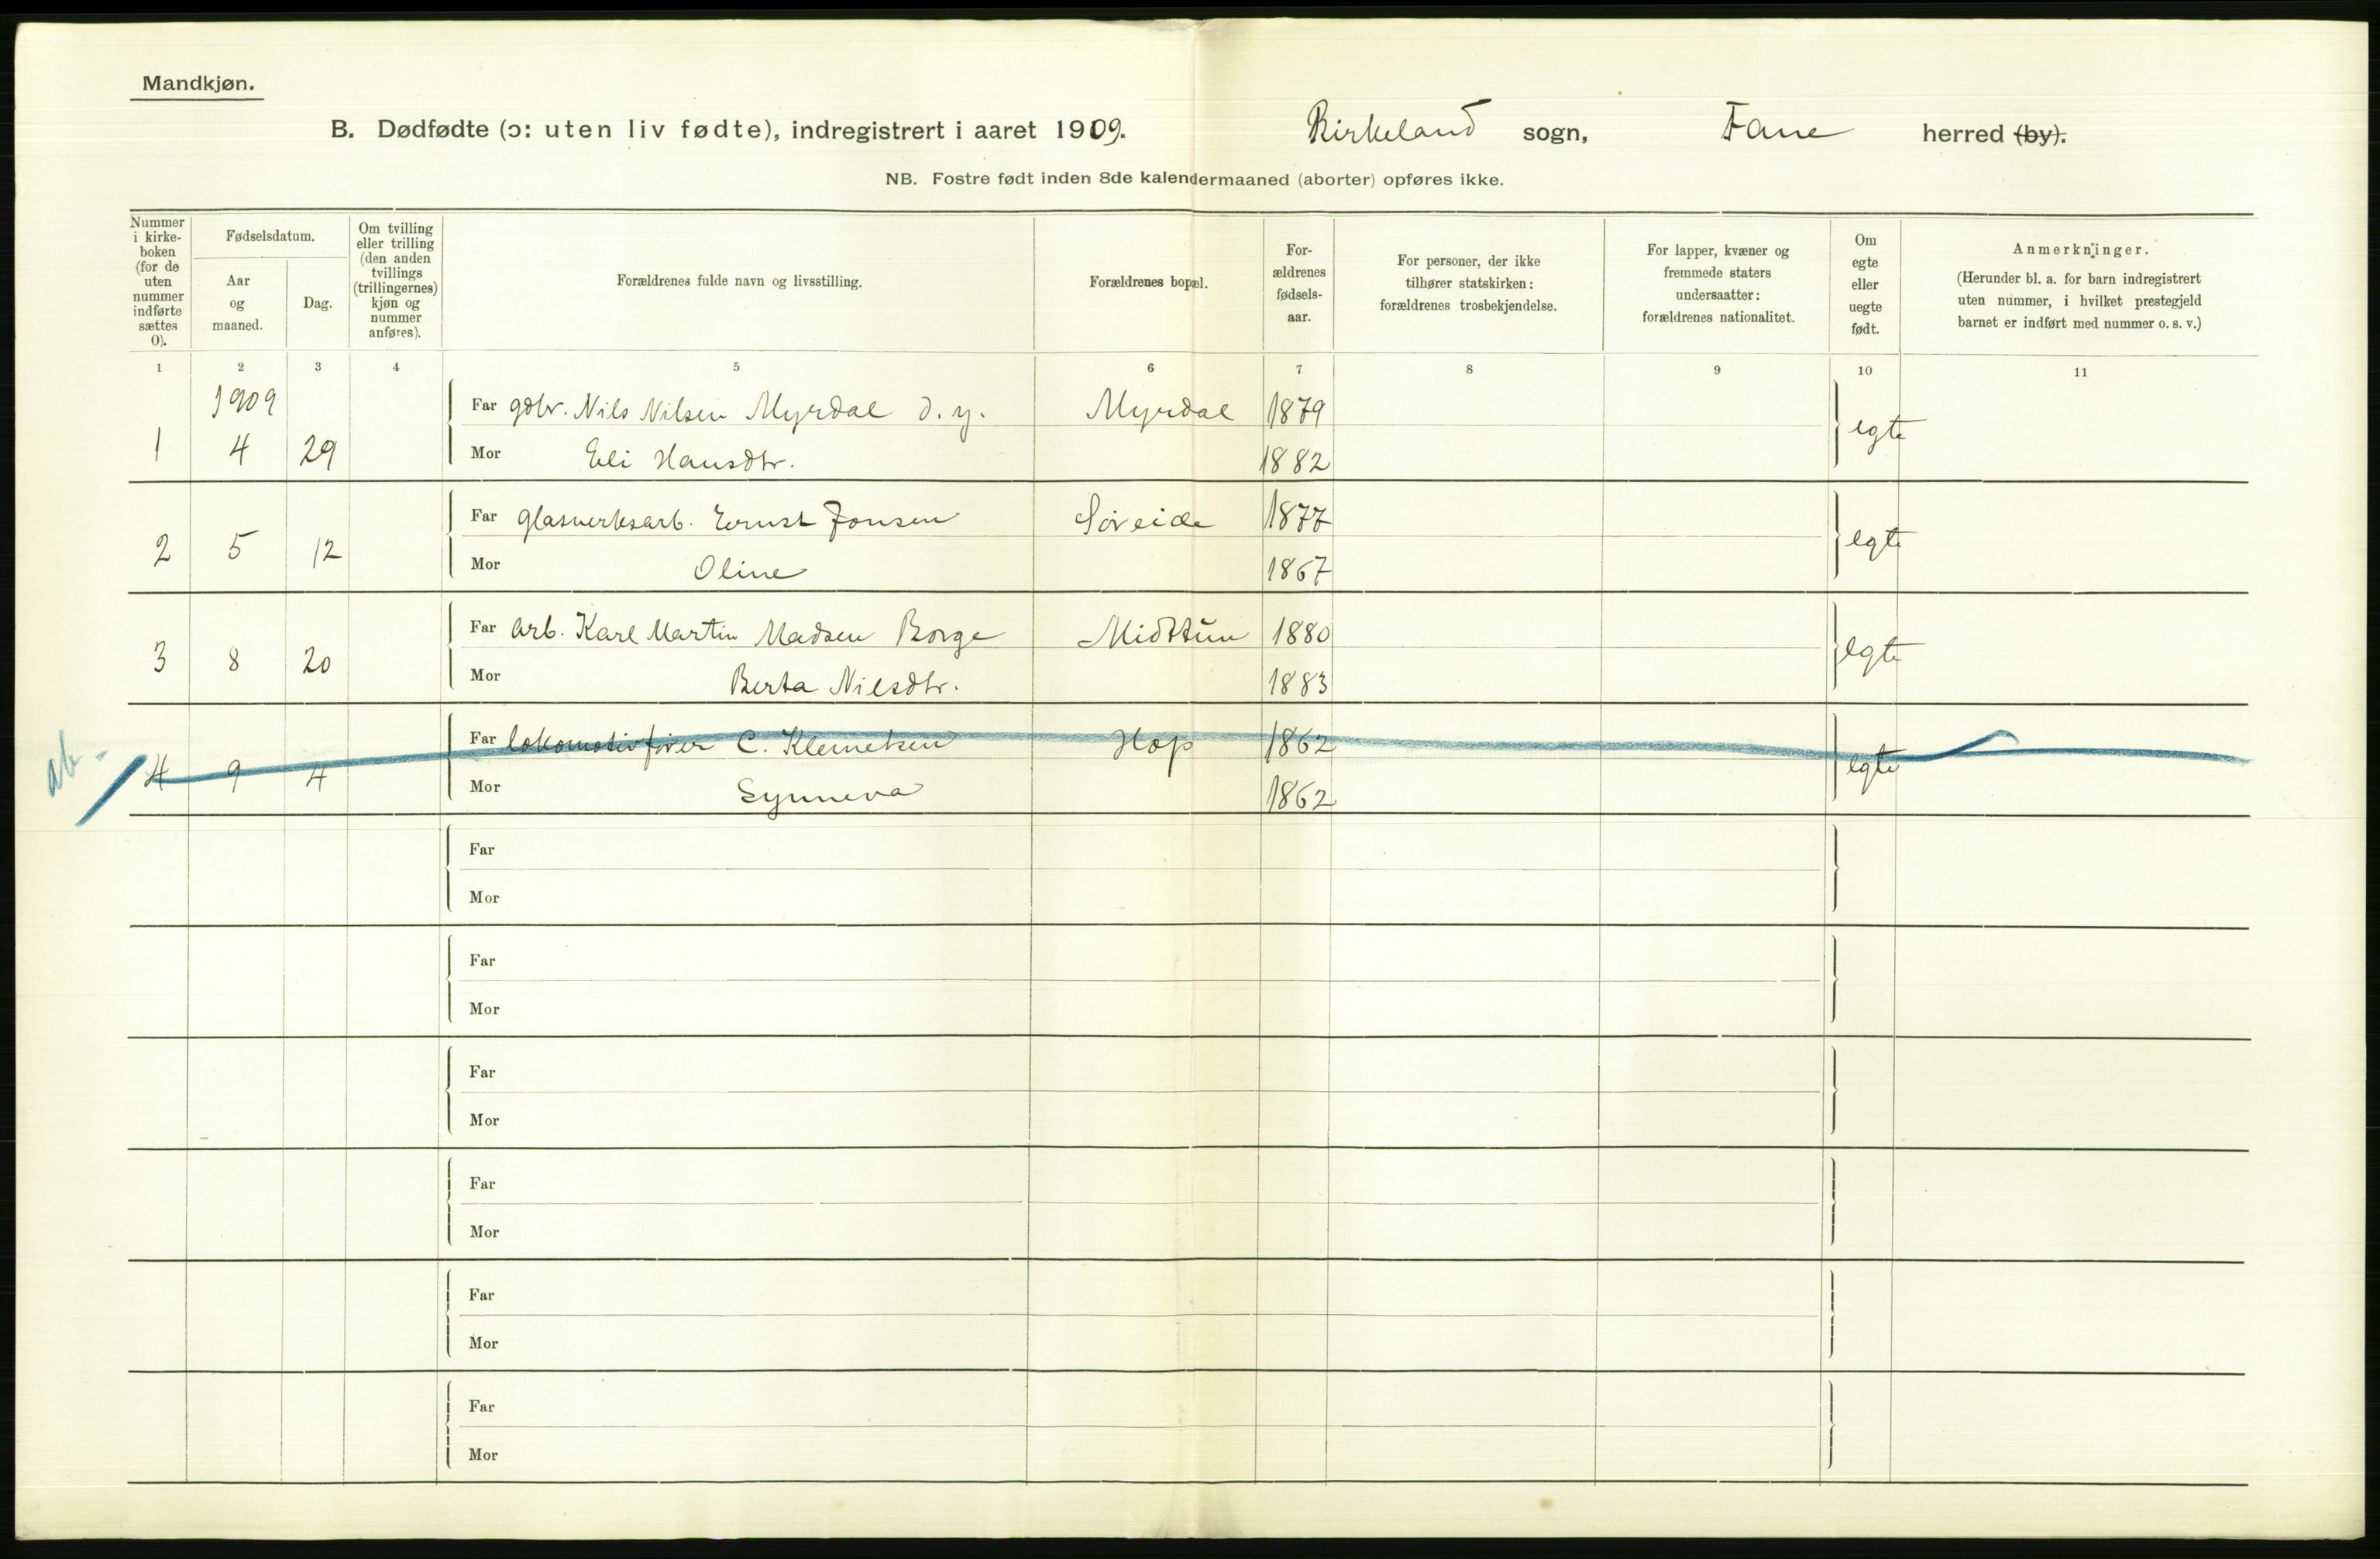 Mandkjøn.
B. Dødfødte (ɔ: uten liv fødte), indregistrert i aaret 1909. Birkeland sogn, Fane herred (by).
NB. Fostre født inden 8de kalendermaaned (aborter) opføres ikke.
Nummer
i kirke-
boken
(for de
uten
nummer
indførte
sættes
0).
Fødselsdatum.
Aar
og
maaned.
Dag.
Om tvilling
eller trilling
(den anden
tvillings
(trillingernes)
kjøn og
nummer
anføres).
Forældrenes fulde navn og livsstilling.
Forældrenes bopæl.
For-
ældrenes
fødsels-
aar.
For personer, der ikke
tilhører statskirken:
forældrenes trosbekjendelse.
For lapper, kvæner og
fremmede staters
undersaatter:
forældrenes nationalitet.
Om
egte
eller
uegte
født.
Anmerkninger.
(Herunder bl. a. for barn indregistrert
uten nummer, i hvilket prestegjeld
barnet er indført med nummer o. s. v.)
1 2 3 4 5 6 7 8 9 10 11
1909
Far gdbr. Nils Nilsen Myrdal d. y. Myrdal 1879
1 4 29 egte
Mor Eli Hansdtr. 1882
Far glasverksarb. Ernst Jonsen Søreide 1877
2 5 12 egte
Mor Oline 1867
Far arb. Karl Martin Madsen Borge Midttun 1880
3 8 20 egte
Mor Berta Nilsdtr. 1883
Far lokomotivfører C. Klemetsen Hop 1862
ab-
4 9 4 egte
Mor Synneva 1862
Far
Mor
Far
Mor
Far
Mor
Far
Mor
Far
Mor
Far
Mor